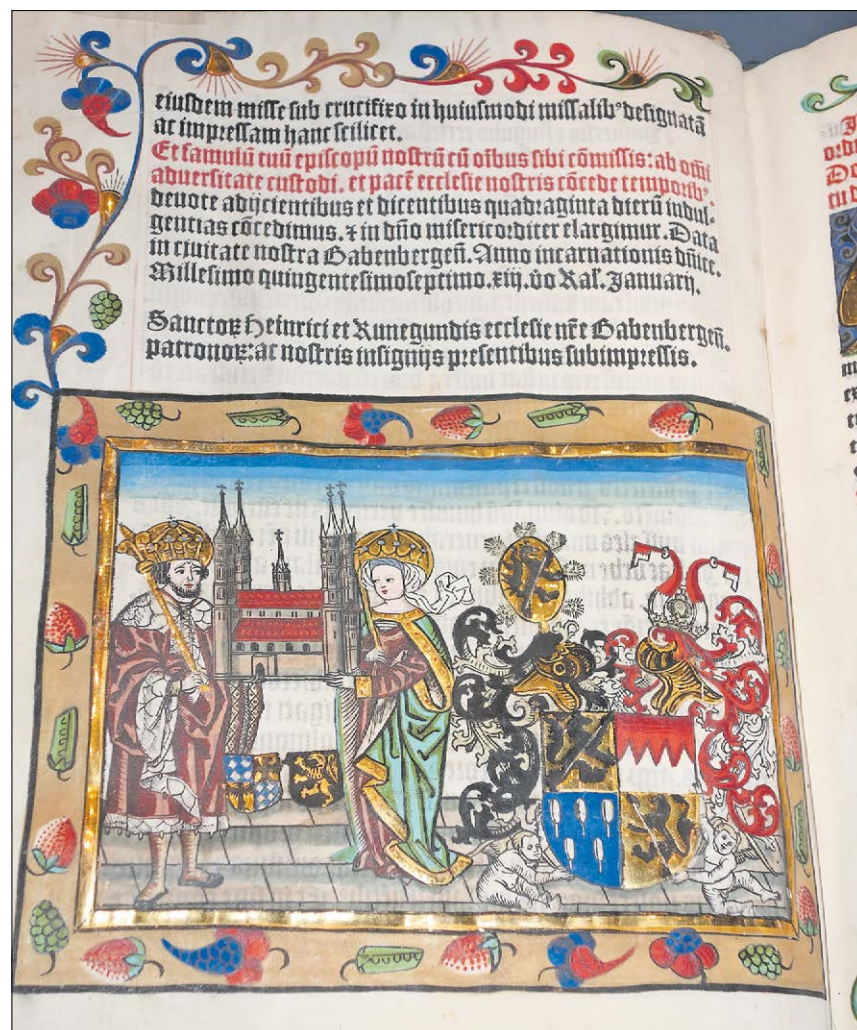 eiusdem misse sub crucifixo in huiusmodi missalibꝰ designatā
ac impressam hanc scilicet.
Et famulū tuū episcopū nostrū cū oībus sibi cōmissis: ab omī
aduersitate custodi. et pacē ecclesie nostris cōcede temporibꝰ.
deuote adijcientibus et dicentibus quadraginta dierū indul-
gentias cōcedimus. ⁊ in dño misericorditer elargimur. Data
in ciuitate nostra Babenbergeñ. Anno incarnationis dñice.
Millesimo quingentesimoseptimo. xiij. v̊o Kal̕. Januarij.
Sanctoꝝ Heinrici et Kunegundis ecclesie nr̄e Babenbergeñ.
patronoꝝ: ac nostris insignijs presentibus subimpressis.